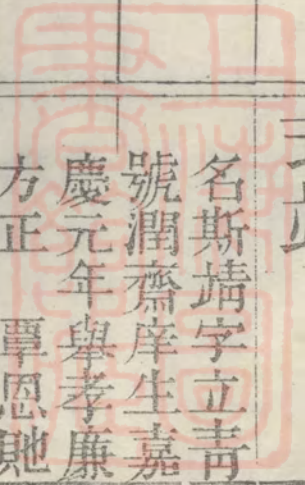 名斯靖字立青
號潤齋庠生嘉
慶元年舉孝廉
方正 覃恩貤